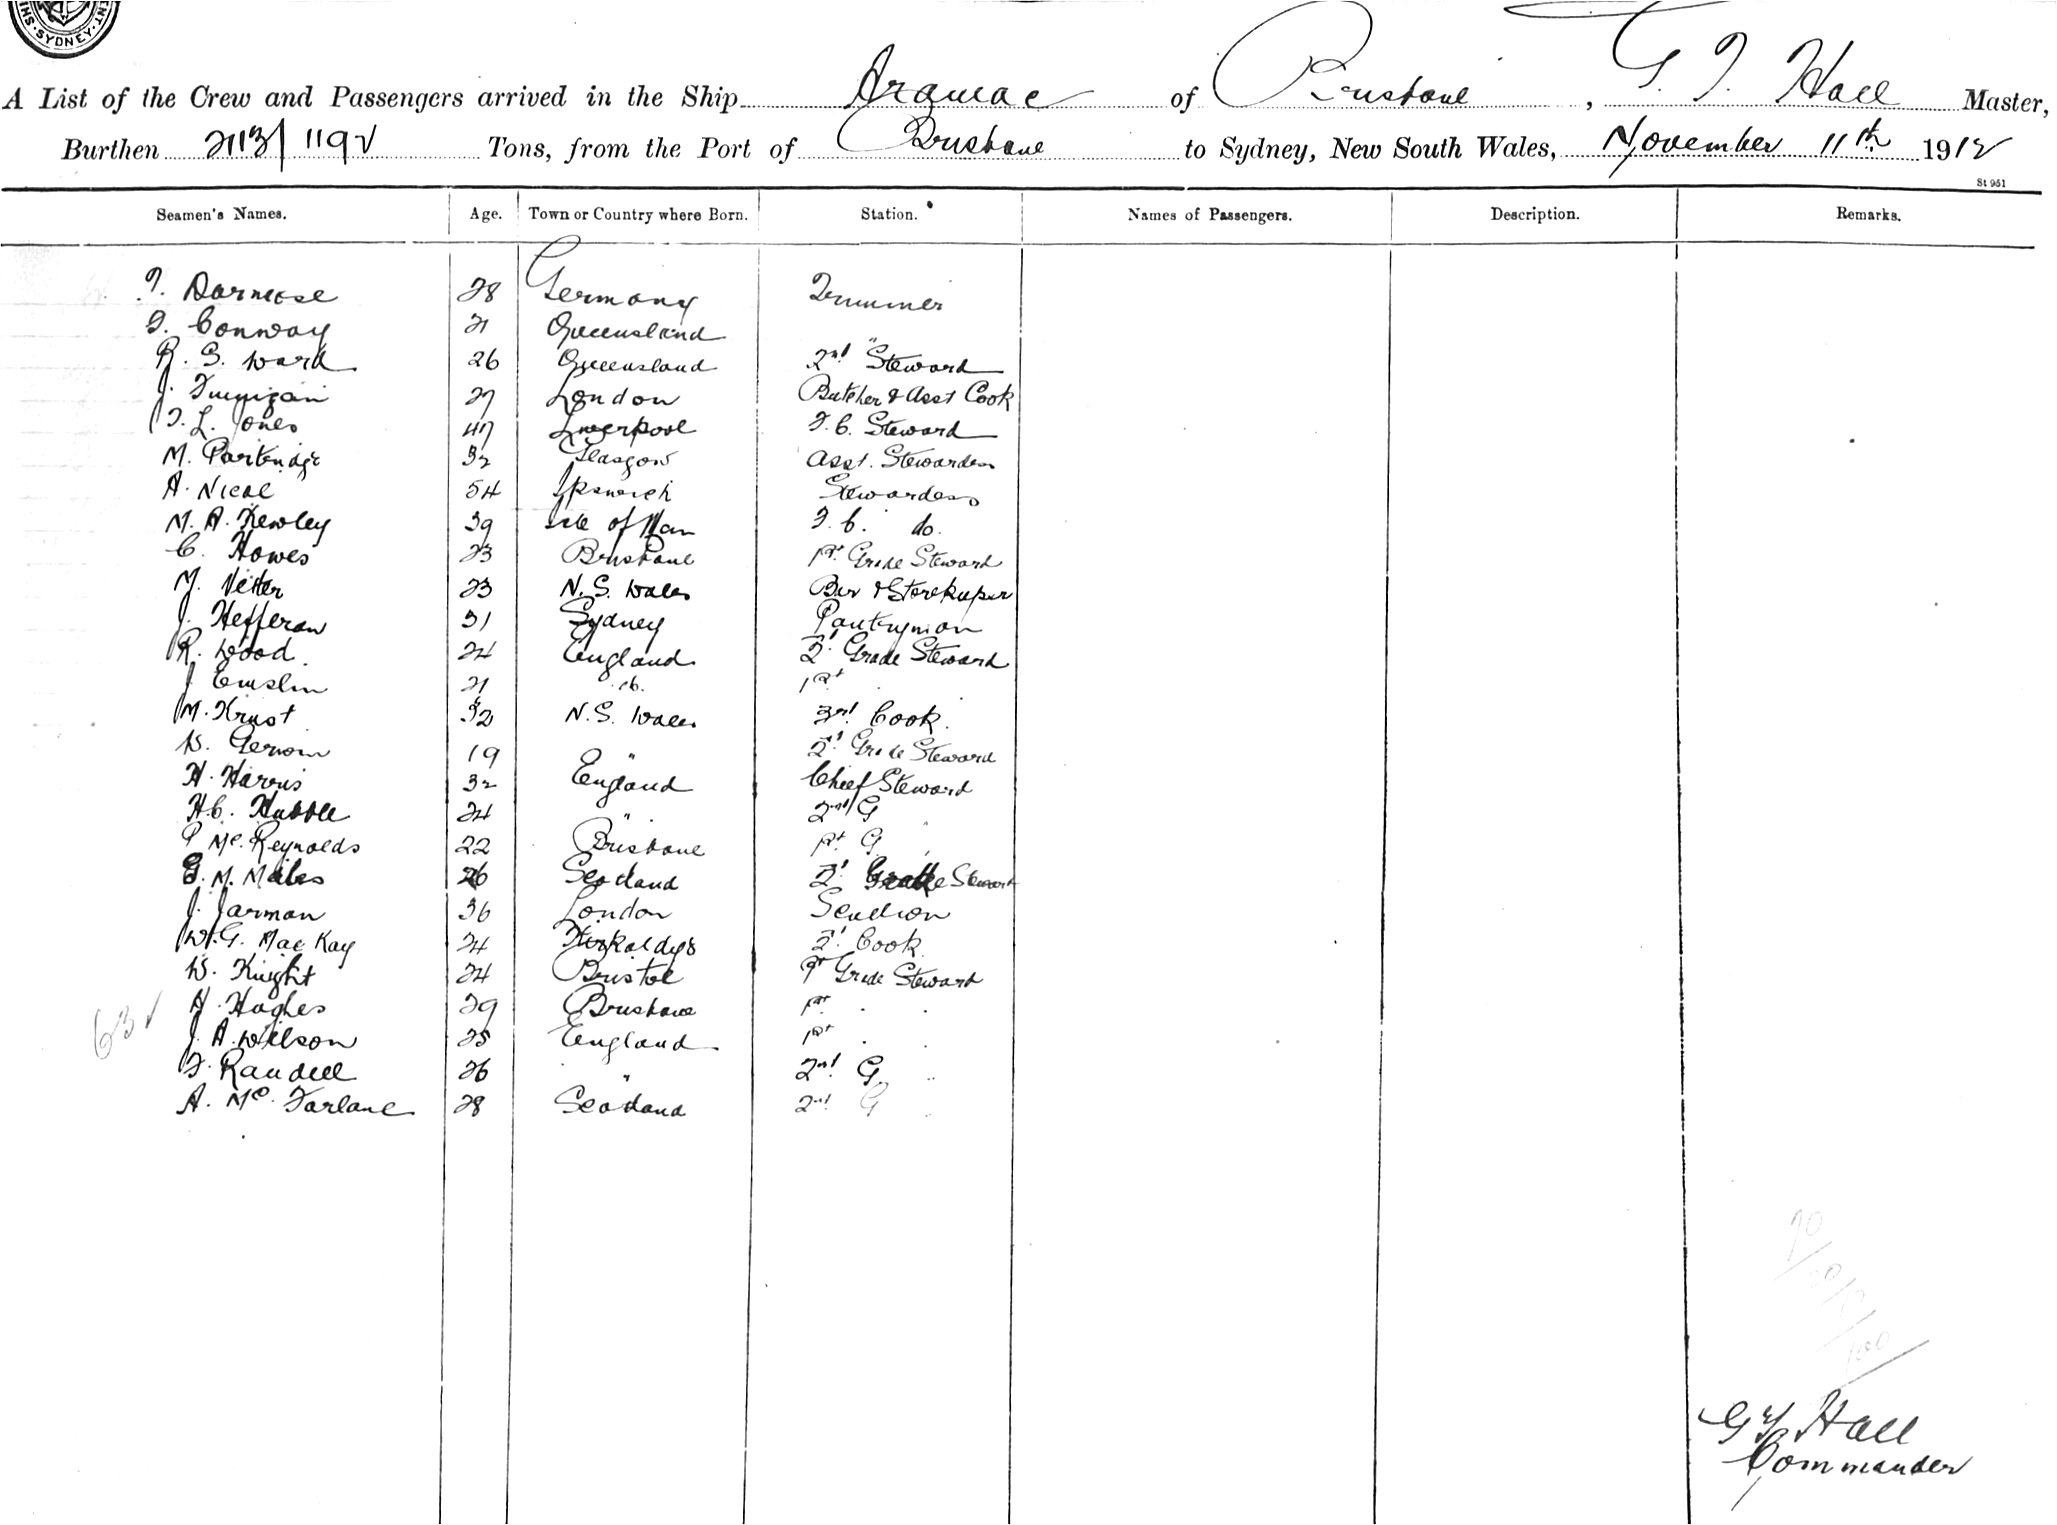 SYDNEY
A List of the Crew and Passengers arrived in the Ship Aramac of Brisbane, G. T. Hall Master,
Burthen 2113/1192 Tons, from the Port of Brisbane to Sydney, New South Wales, November 11th 1912
St 951
Seamen's Names. Age. Town or Country where Born. Station. Names of Passengers. Description. Remarks.
28 Germany Trimmer
Conway 21 Queensland "
R. S. Ward 26 Queensland 2nd Steward
J. 27 London Butcher & Asst Cook
T. L. Jones 47 Liverpool F. C. Steward
M. Partridge 32 Glasgow Asst. Stewardess
A. Nicol 54 Ipswich Stewardess
M. A. Kewley 39 Isle of Man F. C. do.
C. Howes 23 Brisbane 1st Grade Steward
M. Vetter 23 N. S. Wales Bar & Storekeeper
J. Hefferan 31 Sydney Pantryman
R. Wood 24 England 2d Grade Steward
J. Emslin 21 1st
M. Krust 32 N. S. Wales 3rd Cook.
W. 19 " 2d Grade Steward
H. Harris 32 England Chief Steward
H. C. Hubble 24 " 2nd G "
P. Mc. Reynolds 22 Brisbane 1st G "
G. M. 26 Scotland 2d Grade Steward
J. Jarman 36 London Scullion
W. G. Mac Kay 24 2d Cook
W. Knight 24 Bristol 1st Grade Steward
H. Hughes 29 Brisbane 1st . .
J. A. Wilson 25 England 1st . .
F. Randell 26 " 2nd G "
A. Mc. Farlane 28 Scotland 2nd G "
63
G T Hall
Commander